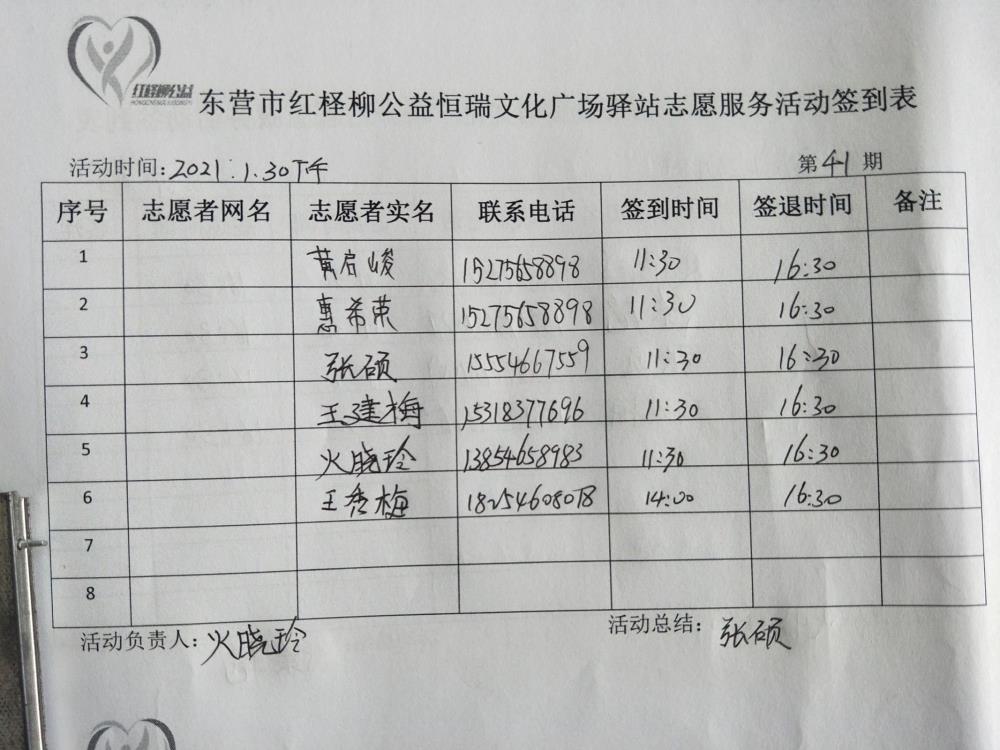 红柽柳公益
东营市红柽柳公益恒瑞文化广场驿站志愿服务活动签到表
活动时间:2021.1.30下午 第41期
序号 志愿者网名 志愿者实名 联系电话 签到时间 签退时间 备注
1 黄启峻 15275658898 11:30 16:30
2 惠希荣 15275658898 11:30 16:30
3 张硕 15554667559 11:30 16:30
4 王建梅 15318377696 11:30 16:30
5 火晓玲 13854658983 11:30 16:30
6 王秀梅 18254608018 14:00 16:30
7
8
活动负责人:火晓玲 活动总结:张硕